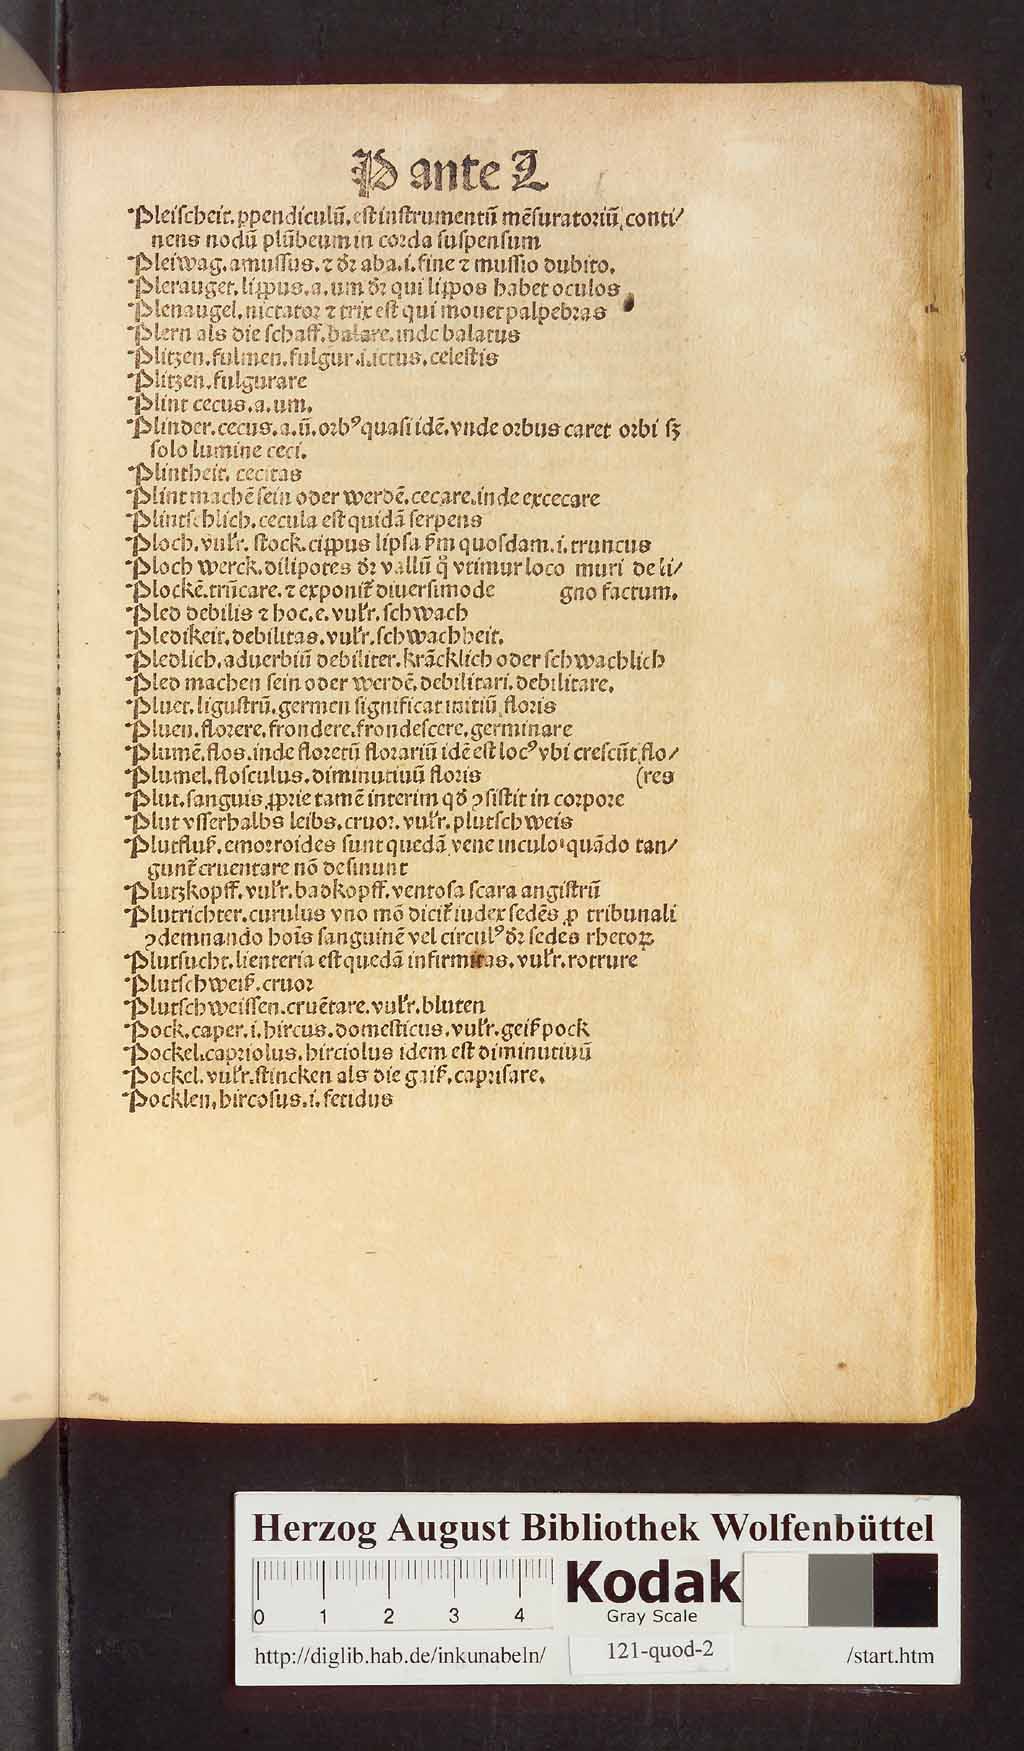 P ante L
Pleischeit. ꝑpendiculū. est instrumentū mēsuratoriū conti/
nens nodū plūbeum in corda suspensum
Pleiwag. amussus. ⁊ dr aba. i. sine ⁊ mussio dubito.
Plerauget. lippus. a. um dr qui lippos habet oculos
Plenaugel. nictator ⁊ trix est qui mouet palpebras
Plern als die schaff. balare. inde balatus
Plitzen. fulmen. fulgur. i. ictus. celestis
Plitzen. fulgurare
Plint cecus. a. um.
Plinder. cecus. a. ū. orbꝰ quasi idē. vnde orbus caret orbi sꝫ
solo lumine ceci.
Plintheit. cecitas
Plint machē sein oder werdē. cecare. inde excecare
Plintschlich. cecula est quidā serpens
Ploch. vulr. stock. cippus lipsa km quosdam. i. truncus
Ploch werck. dilipotes dr vallū q̊ vtimur loco muri de li/
Plockē. trūcare. ⁊ exponit̃ diuersimode gno factum.
Pled debilis ⁊ hoc. e. vulr. schwach
Pledikeit. debilitas. vulr. schwachheit.
Pledlich. aduerbiū debiliter. krācklich oder schwachlich
Pled machen sein oder werdē. debilitari. debilitare.
Pluet. ligustrū. germen significat initiū floris
Pluen. florere. frondere. frondescere. germinare
Plumē. flos. inde floretū florariū idē est locꝰ vbi crescūt flo/
Plumel. flosculus. diminutiuū floris (res
Plut. sanguis ꝓprie tamē interim qd̄ ꝯsistit in corpore
Plut vsserhalbs leibs. cruor. vulr. plutschweis
Plutfluß. emorroides sunt quedā vene in culo quādo tan/
gunt̃ cruentare nō desinunt
Plutzkopff. vulr. badkopff. ventosa scara angistrū
Plutrichter. curulus vno mō dicit̃ iudex sedēs ꝓ tribunali
ꝯdemnando hoīs sanguinē vel circulꝰ dr sedes rhetoꝝ
Plutsucht. lienteria est quedā infirmitas. vulr. rotrure
Plutschweiß. cruor
Plutschweissen. cruētare. vulr. bluten
Pock. caper. i. hircus. domesticus. vulr. geißpock
Pockel. capriolus. hirciolus idem est diminutiuū
Pockel. vulr. stincken als die gaiß. caprisare.
Pocklen. hircosus. i. fetidus
Herzog August Bibliothek Wolfenbüttel
0 1 2 3 4
Kodak
Gray Scale
http://diglib.hab.de/inkunabeln/ 121-quod-2 /start.htm